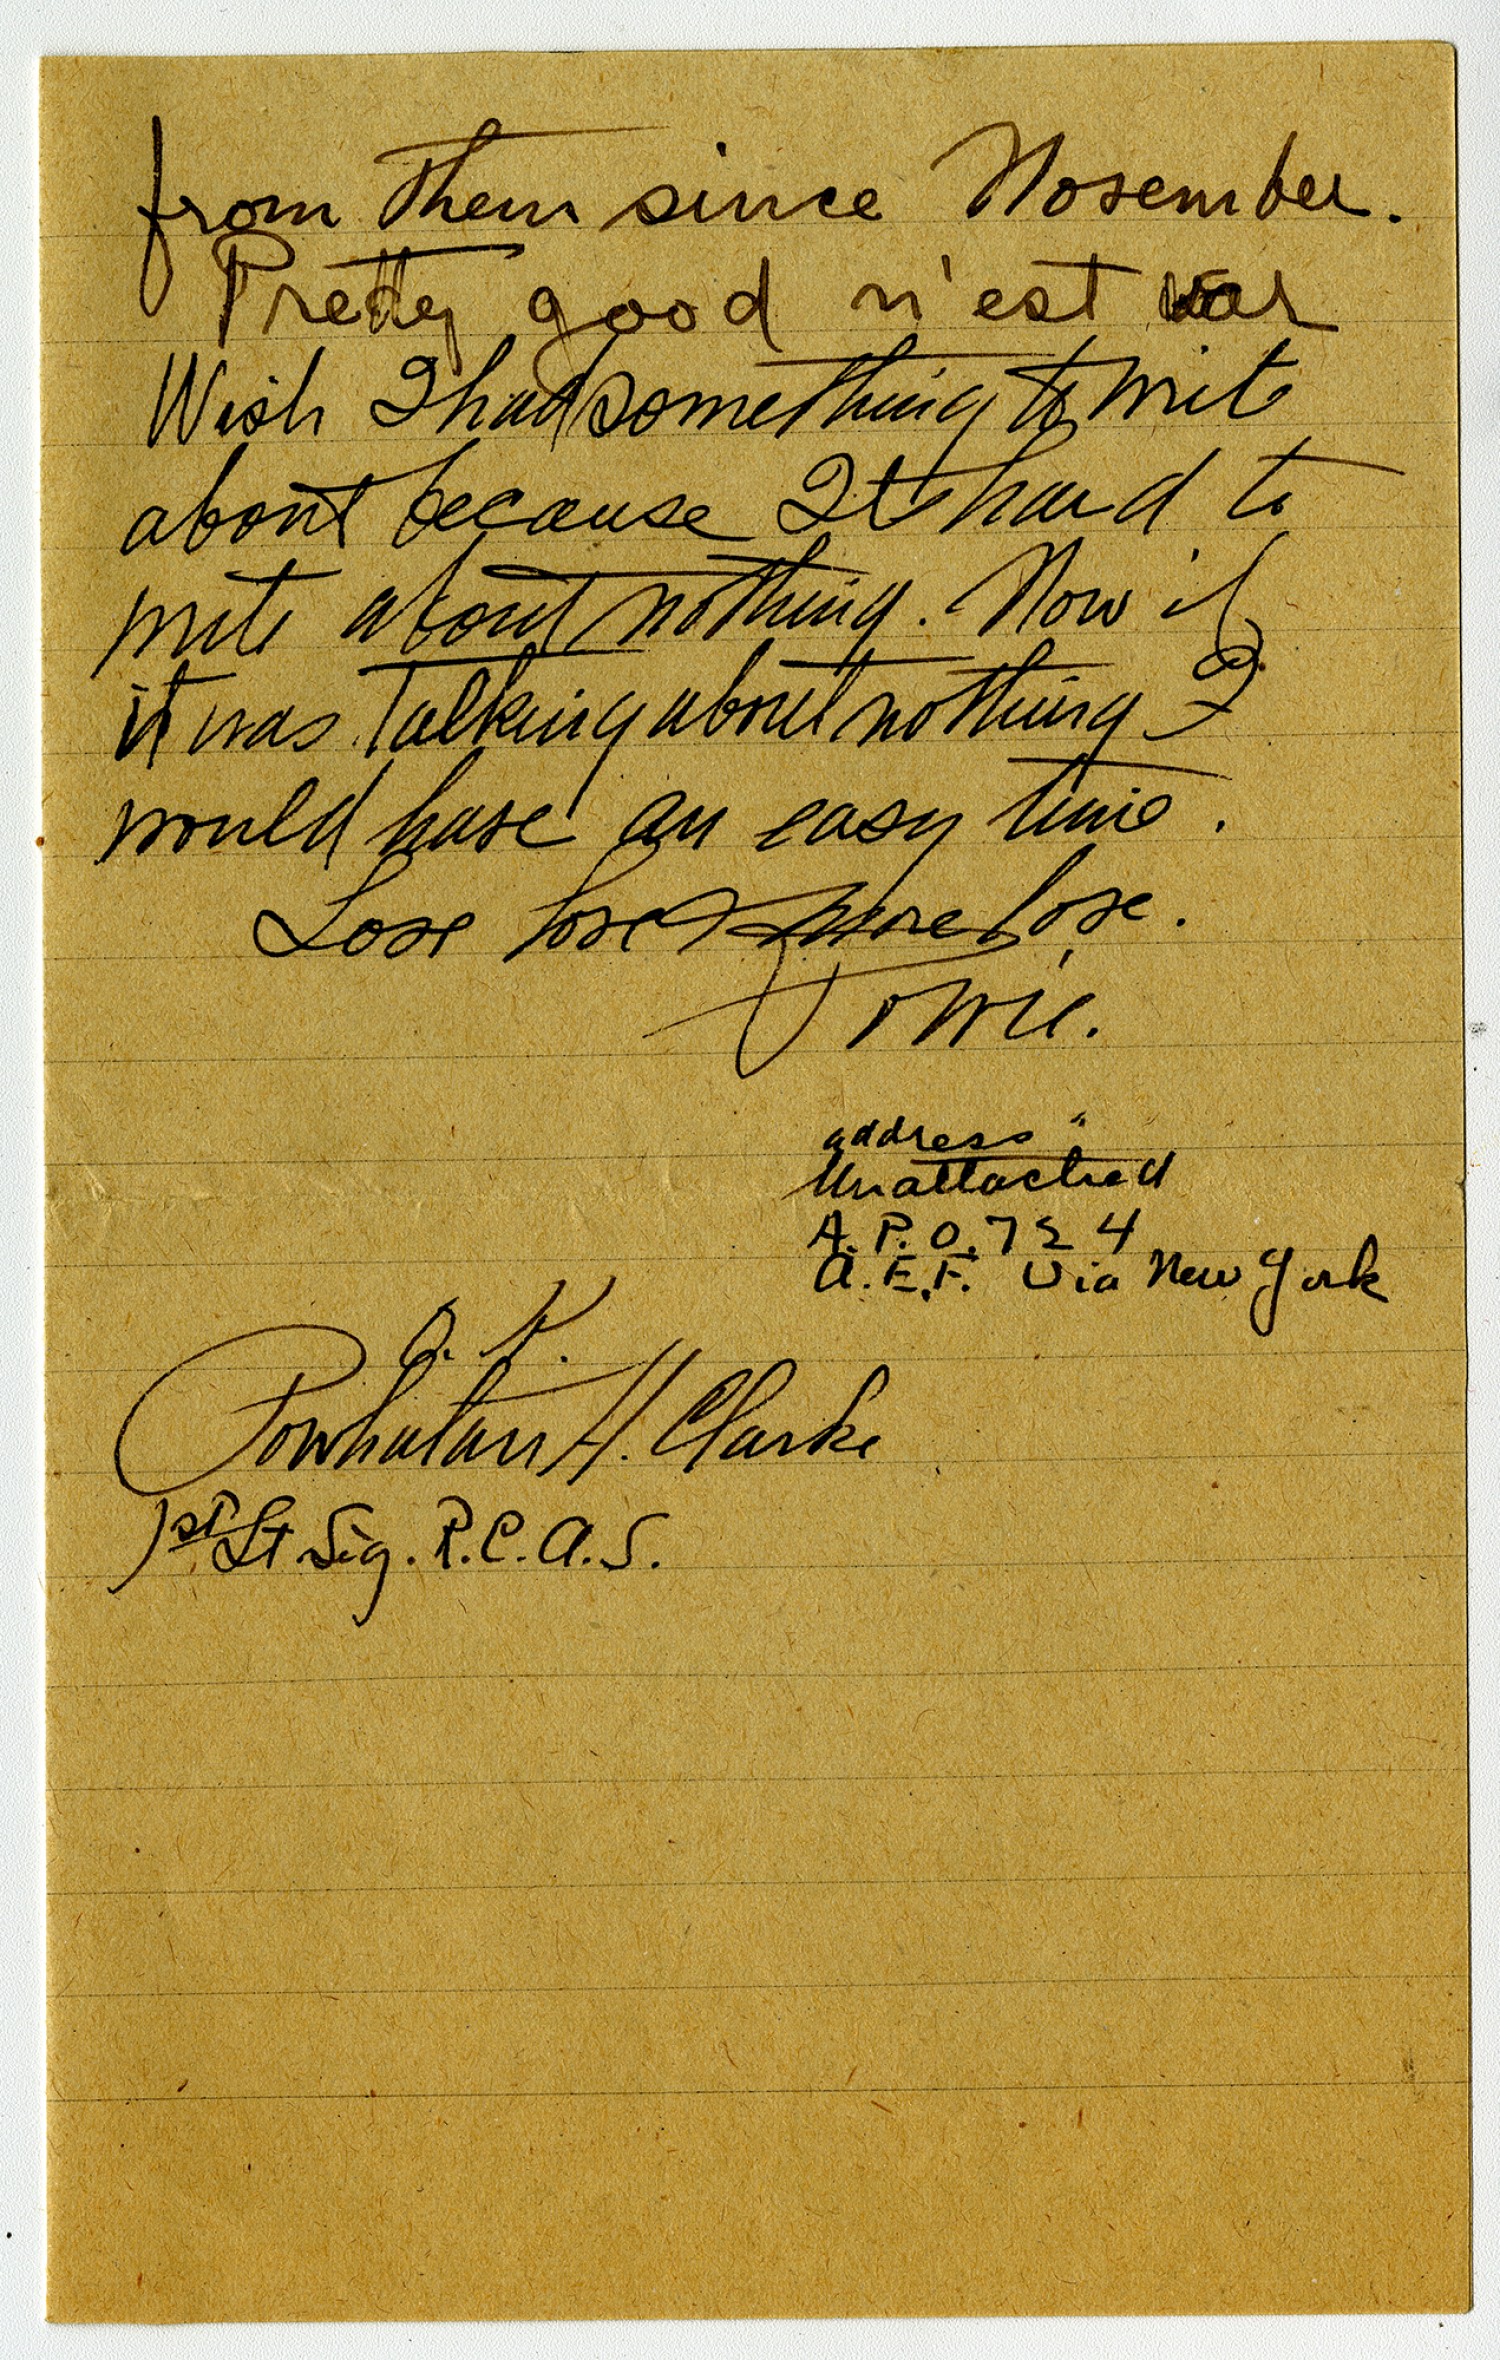 from them since November.
Pretty good n'est pas
Wish I had something to write
about because Its hard to
write about nothing. Now if
it was Talking about nothing I
would have an easy time.
Love love & more love.
Powie.
address"
Unattached
A.P.O. 724
A.E.F. Via New York
O.K.
Powhatan H. Clarke
1st Lt. Sig. R.C.A.S.